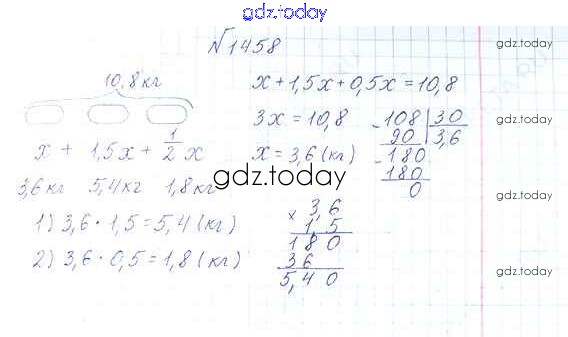 gdz.today
№1458
gdz.today
10,8 кг
x + 1,5x + 0,5x = 10,8
gdz.today
3x = 10,8
108 | 30
90 | 3,6
x + 1,5x + 1/2 x
x = 3,6 (кг)
- 180
180
0
3,6 кг 5,4 кг 1,8 кг
gdz.today
1) 3,6 · 1,5 = 5,4 (кг)
× 3,6
1,5
180
36
5,40
2) 3,6 · 0,5 = 1,8 (кг)
gdz.today
gdz.today